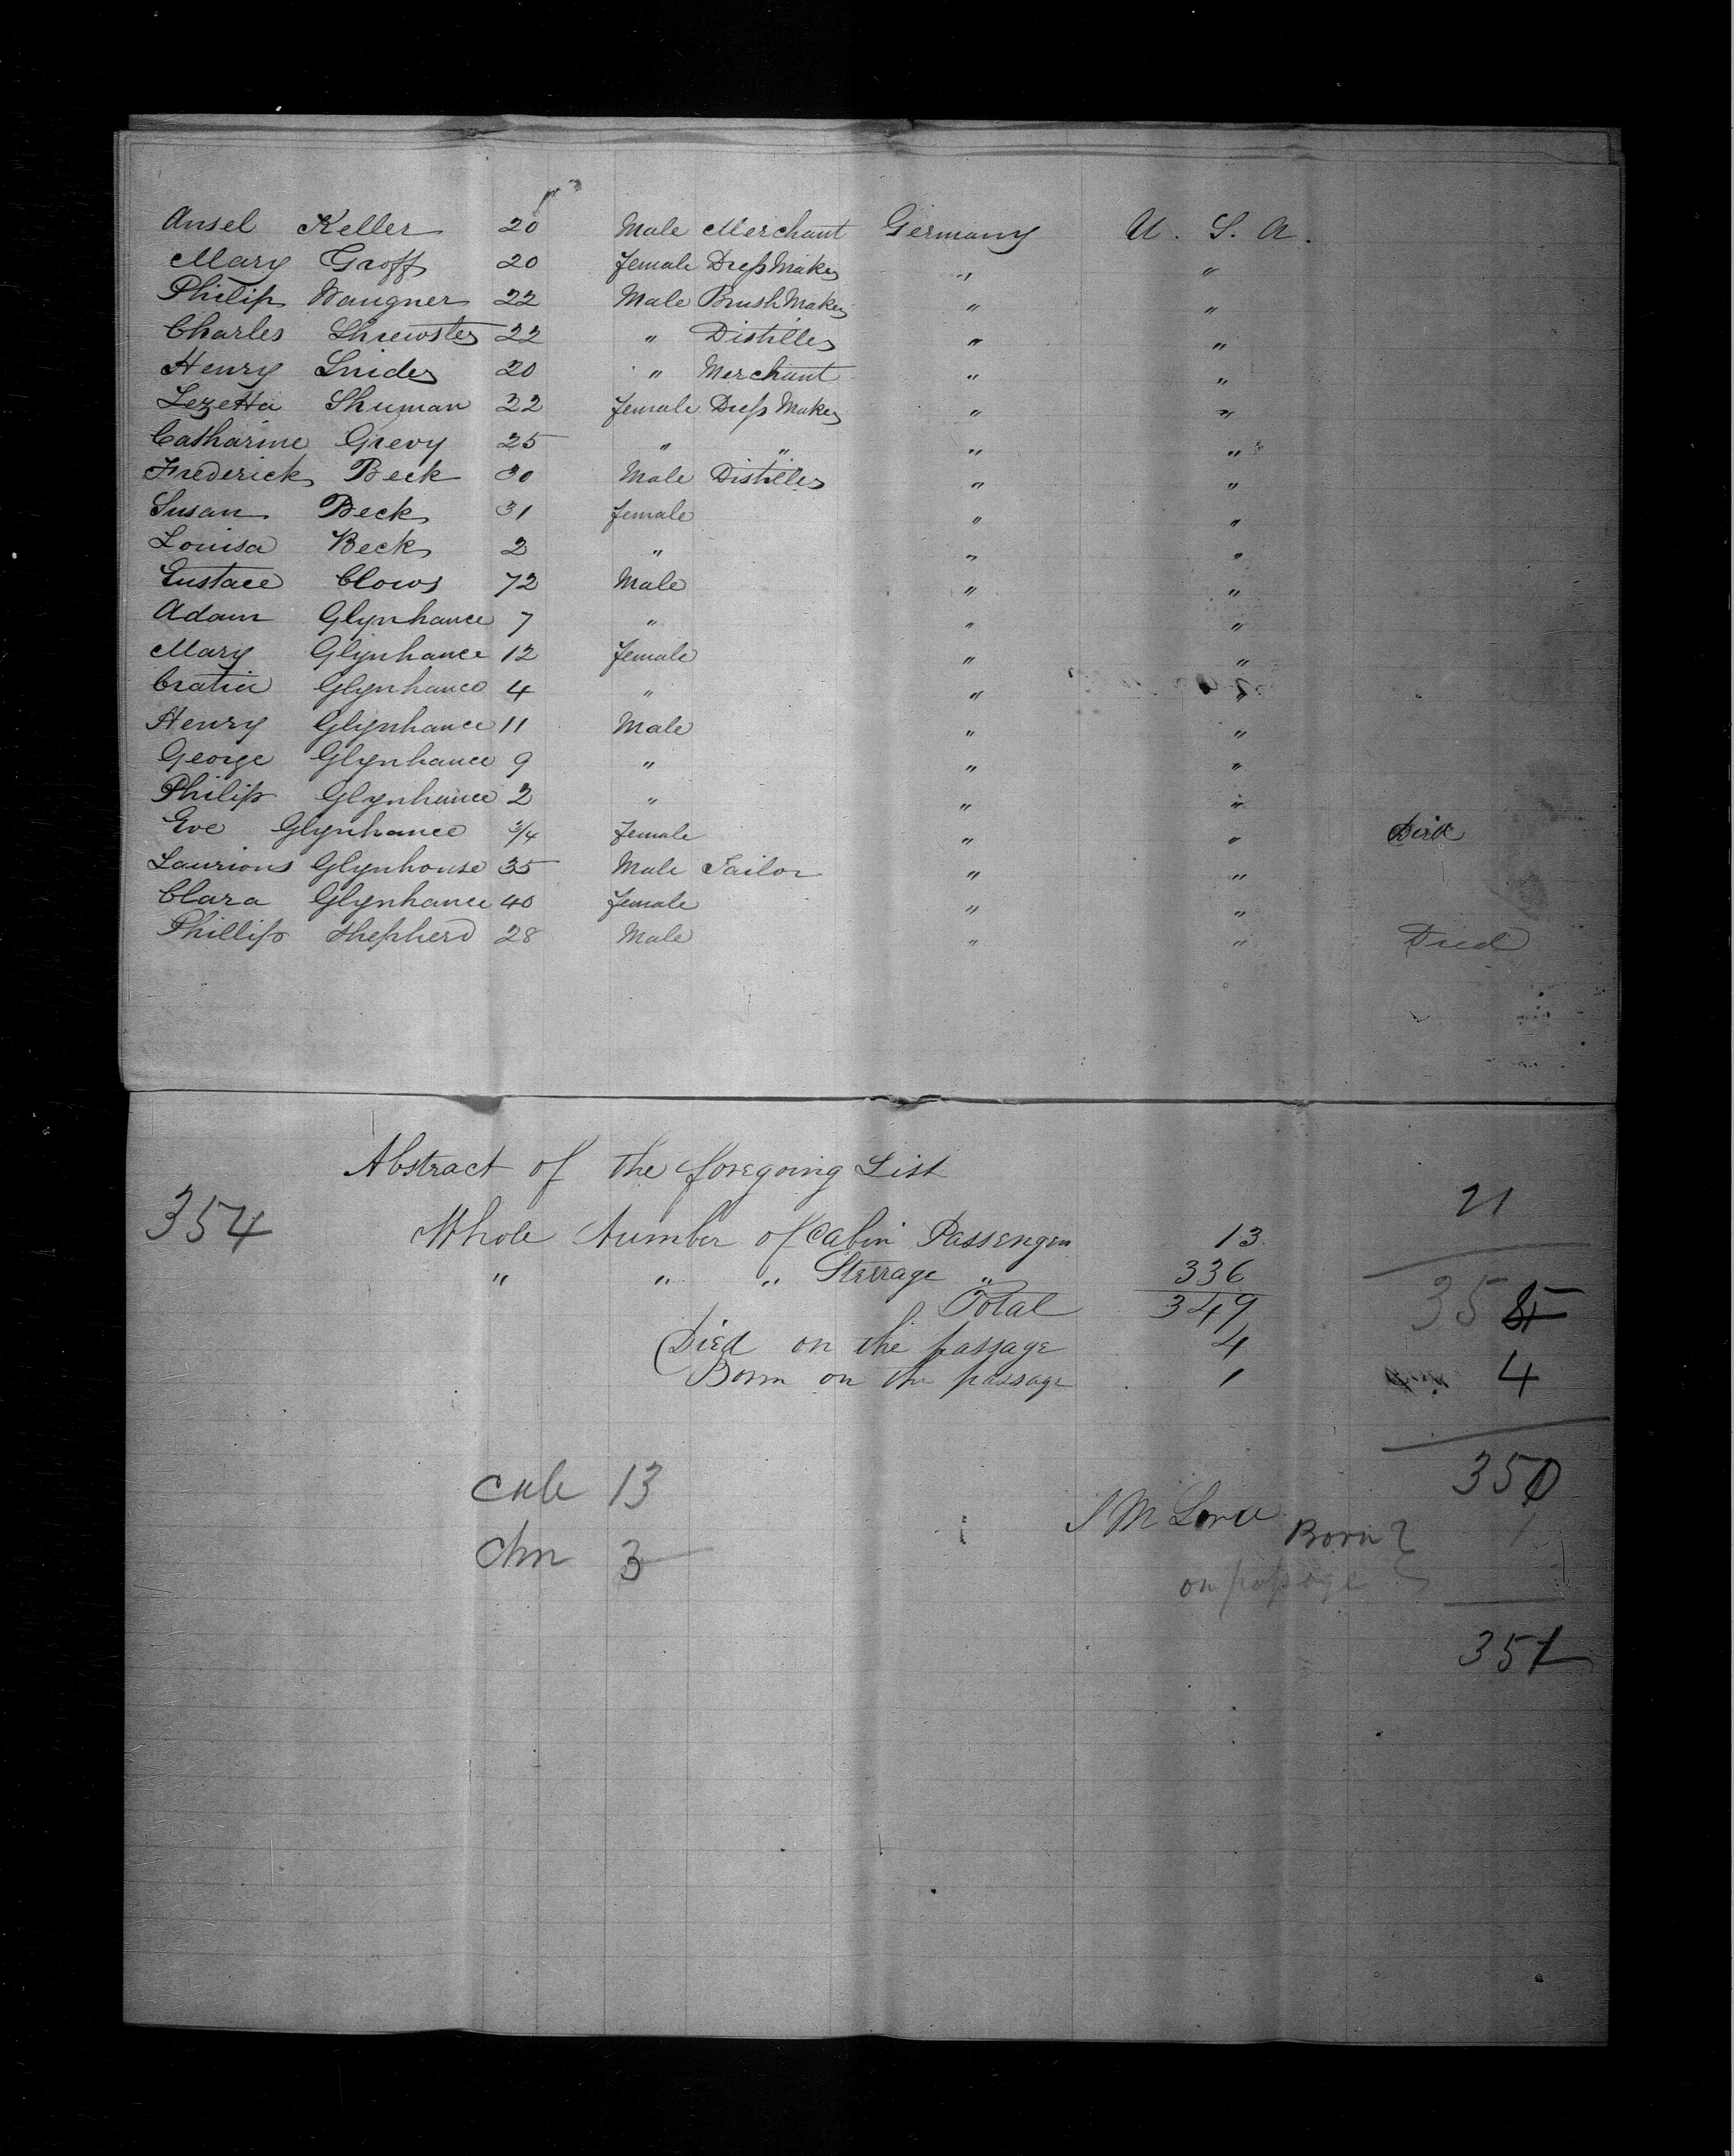 Ansel Keller 20 Male Merchant Germany U. S. A.
Mary Groff 20 female Dress Maker " "
Philip Waugner 22 Male Brush Maker " "
Charles Shrewster 22 " Distiller " "
Henry Snider 20 " Merchant " "
Lezetta Shuman 22 female Dress Maker " "
Catharine Grevy 25 " " " "
Frederick Beck 30 Male Distiller " "
Susan Beck 31 female " "
Louisa Beck 2 " " "
Eustace Clows 72 Male " "
Adam Glynhance 7 " " "
Mary Glynhance 12 female " "
Cratia Glynhance 4 " " "
Henry Glynhance 11 Male " "
George Glynhance 9 " " "
Philip Glynhance 2 " " "
Eve Glynhance 3/4 female " "
Laurions Glynhouse 35 Male Tailor " "
Clara Glynhance 40 female " "
Phillip Shepherd 28 Male " " Died
Abstract of the foregoing List
354 21
Whole Number of Cabin Passengers 13
" " " Steerage " 336
Total 349 35
Died on the passage 4
Born on the passage 1 4
350
13
3
S M Lord
Born 1
on passage
351